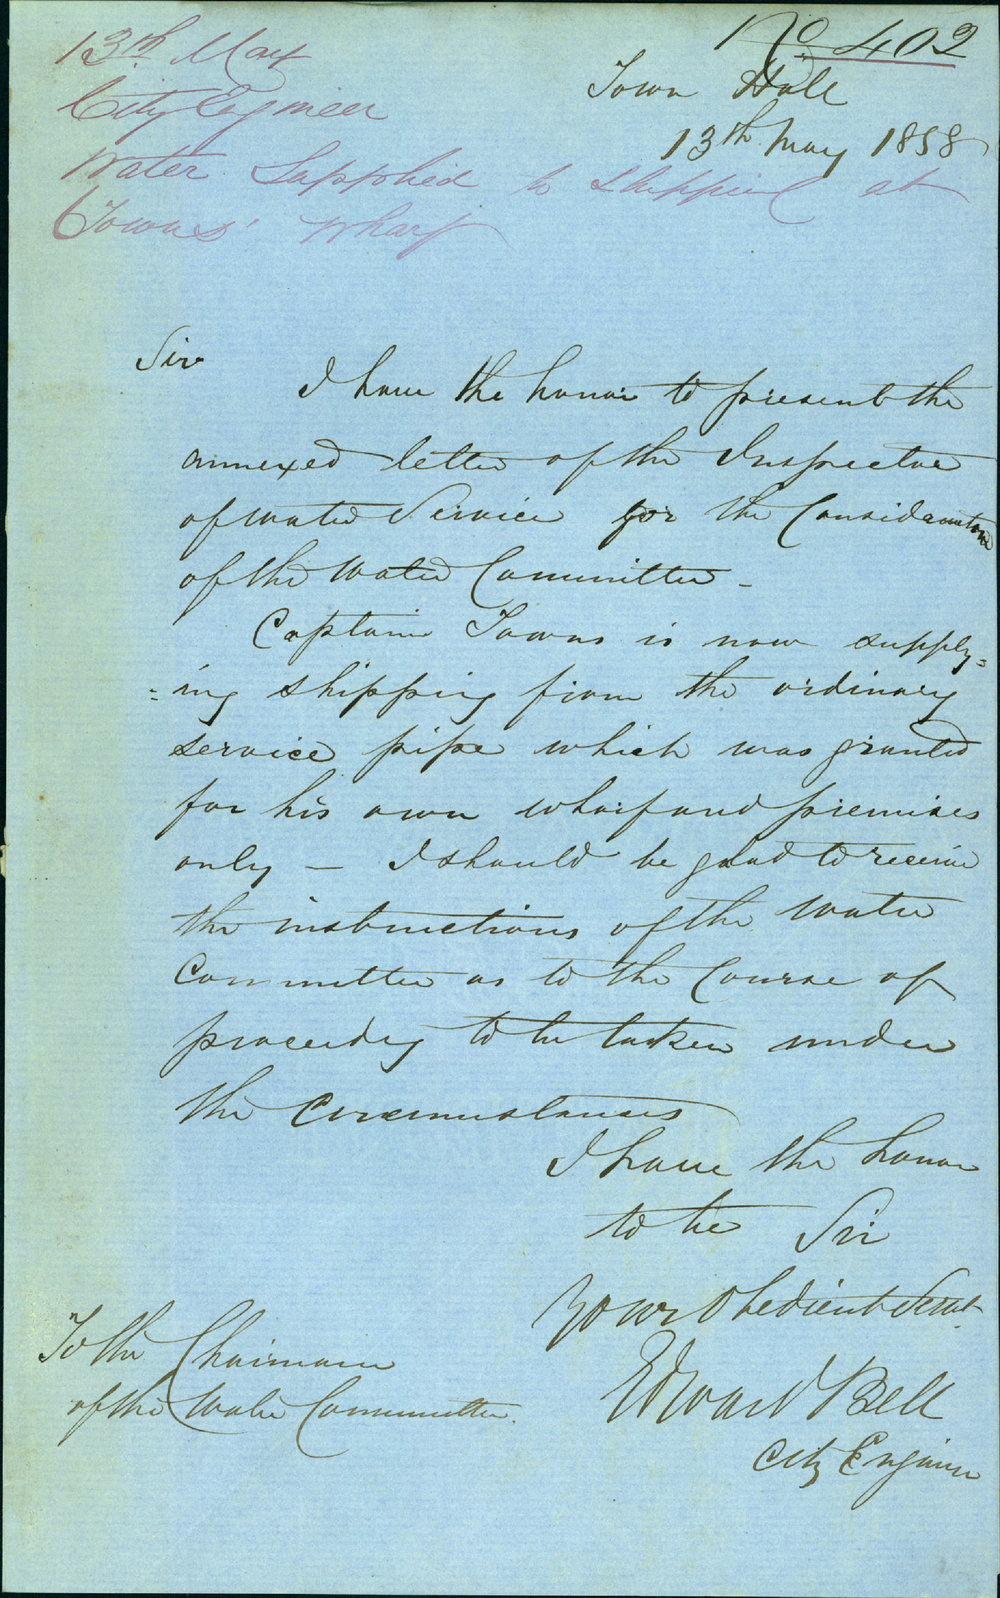 No 402
13th May
City Engineer
Water Supplied to Shipping at
Towns' Wharf
Town Hall
13th May 1858
Sir
I have the honor to present the
annexed letter of the Inspector
of Water Service for the Consideration
of the Water Committee -
Captain Towns is now supply=
=ing shipping from the ordinary
service pipe which was granted
for his own wharf and premises
only - I should be glad to receive
the instructions of the Water
Committee as to the Course of
proceeding to be taken under
the Circumstances
I have the honor
to be Sir
Your Obedient Servt
Edward Bell
City Engineer
To the Chairman
of the Water Committee.